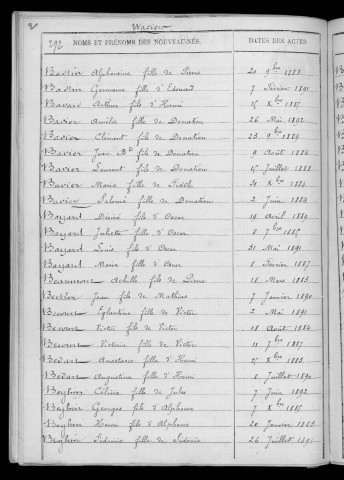 2
Waziers
292
NOMS ET PRÉNOMS DES NOUVEAU-NÉS. DATES DES ACTES
Bavier Alphonsine fille de Pierre 20 9bre 1888
Bavier Germaine fille d'Edouard 7 Février 1891
Bavard Arthur fils d'Henri 15 Xbre 1887
Bavier Amélie fille de Donation 26 Mai 1892
Bavier Clément fils de Donation 23 9bre 1889
Bavier Jean Bte fils de Donation 9 Août 1886
Bavier Laurent fils de Donation 15 Juillet 1888
Bavier Marie fille de Fidèle 31 Xbre 1884
Bavier Palmé fille de Donation 2 Juin 1884
Bayard Désiré fils d'Oscar 19 Avril 1889
Bayard Juliette fille d'Oscar 8 7bre 1885
Bayard Louis fils d'Oscar 31 Mai 1891
Bayard Marie fille d'Oscar 8 Février 1887
Beaumont Achille fils de Pierre 18 Mars 1883
Becker Jean fils de Mathias 7 Janvier 1890
Becour Eglantine fille de Victor 2 Mai 1891
Becour Victor fils de Victor 18 Août 1886
Becour Victoria fille de Victor 11 7bre 1887
Bedart Anastasie fille d'Henri 25 Xbre 1883
Bedart Augustine fille d'Henri 8 Juillet 1890
Beghin Célina fille de Jules 7 Juin 1892
Beghin Georges fils d'Alphonse 7 Xbre 1885
Beghin Henri fils d'Alphonse 20 Janvier 1883
Beghin Sidonie fille de Sidonie 26 Juillet 1891